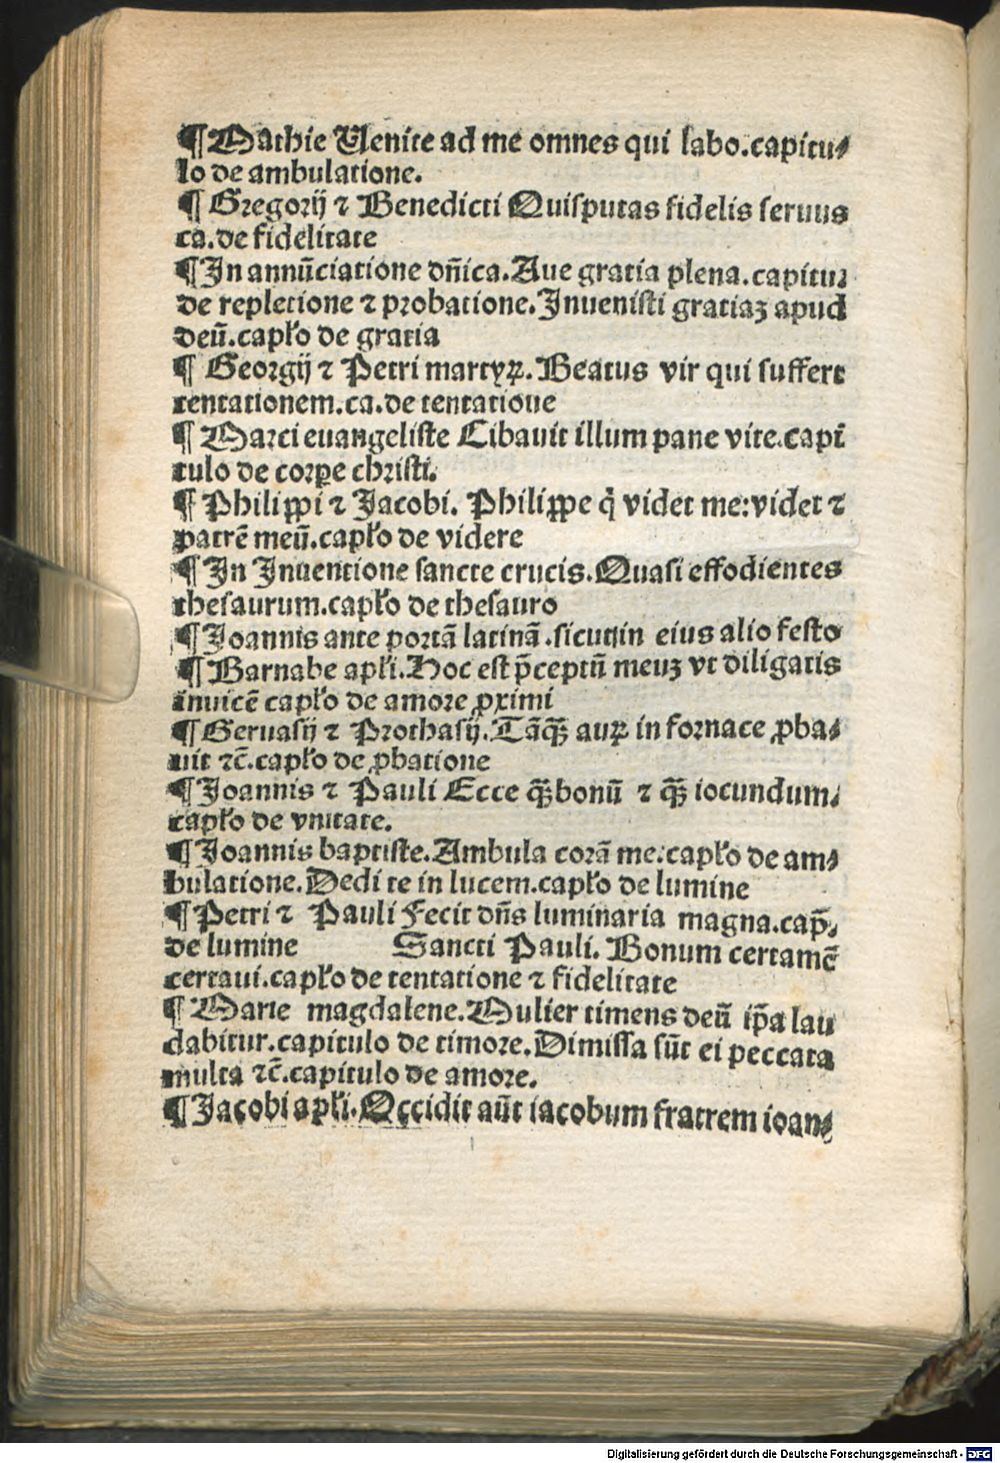 ¶ Mathie Uenite ad me omnes qui labo.capitu⸗
lo de ambulatione.
¶ Gregorij ⁊ Benedicti Quisputas fidelis seruus
ca.de fidelitate
¶ In annūciatione dn̄ica.Aue gratia plena.capitu⸗
de repletione ⁊ probatione.Inuenisti gratiaꝫ apud
deū.capl'o de gratia
¶ Georgij ⁊ Petri martyꝝ.Beatus vir qui suffert
tentationem.ca.de tentatione
¶ Marci euangeliste Cibauit illum pane vite.capi
tulo de corꝑe christi.
¶ Philippi ⁊ Jacobi. Philippe q̇ videt me:videt ⁊
patrē meū.capl'o de videre
¶ In Inuentione sancte crucis.Quasi effodientes
thesaurum.capl'o de thesauro
¶ Joannis ante portā latinā.sicut in eius alio festo
¶ Barnabe apl'i.Hoc est p̄ceptū meuꝫ vt diligatis
inuicē capl'o de amore ꝓximi
¶ Geruasij ⁊ Prothasij.Tāꝙ̄ auꝝ in fornace ꝓba⸗
uit ⁊c̄.capl'o de ꝓbatione
¶ Joannis ⁊ Pauli Ecce ꝙ̄bonū ⁊ ꝙ̄ iocundum⸗
capl'o de vnitate.
¶ Joannis baptiste.Ambula corā me.capl'o de am⸗
bulatione.Dedi te in lucem.capl'o de lumine
¶ Petri ⁊ Pauli Fecit dn̄s luminaria magna.cap̄.
de lumine Sancti Pauli.Bonum certamē
certaui.capl'o de tentatione ⁊ fidelitate
¶ Marie magdalene.Mulier timens deū ip̄a lau
dabitur.capitulo de timore.Dimissa sūt ei peccata
multa ⁊c̄.capitulo de amore.
¶ Jacobi apl'i.Occidit aūt iacobum fratrem ioan⸗
Digitalisierung gefördert durch die Deutsche Forschungsgemeinschaft - DFG